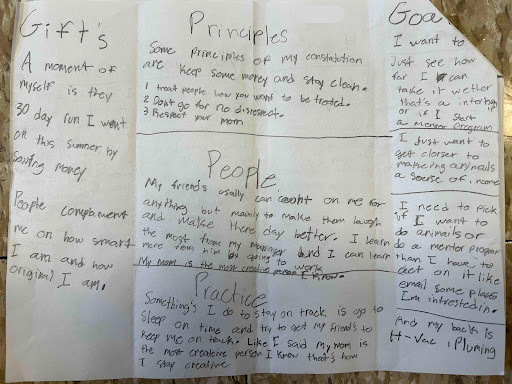 Gift's
A moment of
myself is they
30 day run I went
off this summer by
saving money
People compament
me on how smart
I am and how
original I am.
Principles
Some principles of my constatution
are keep some money and stay clean.
1 treat people how you want to be treated.
2 Dont go for no disrespect.
3 Respect your mom
People
My friend's usally can count on me for
anything but mainly to make them laugh
and make there day better. I learn
the most from my manager and I can learn
more from him by going to work
My mom is the most creative person I know.
Practice
Something's I do to stay on track is go to
sleep on time and try to get my friends to
keep me on track. Like I said my mom is
the most creative person I know that's how
I stay creative
Goa
I want to
Just see how
far I can
take it wether
that's a intership
or if I start
a mentor program
I Just want to
get clorser to
making animals
a sourse of income
I need to pick
if I want to
do animals or
do a menter program
than I have to
act on it like
email some places
I'm intrested in.
And my back is
H-vac, Pluming